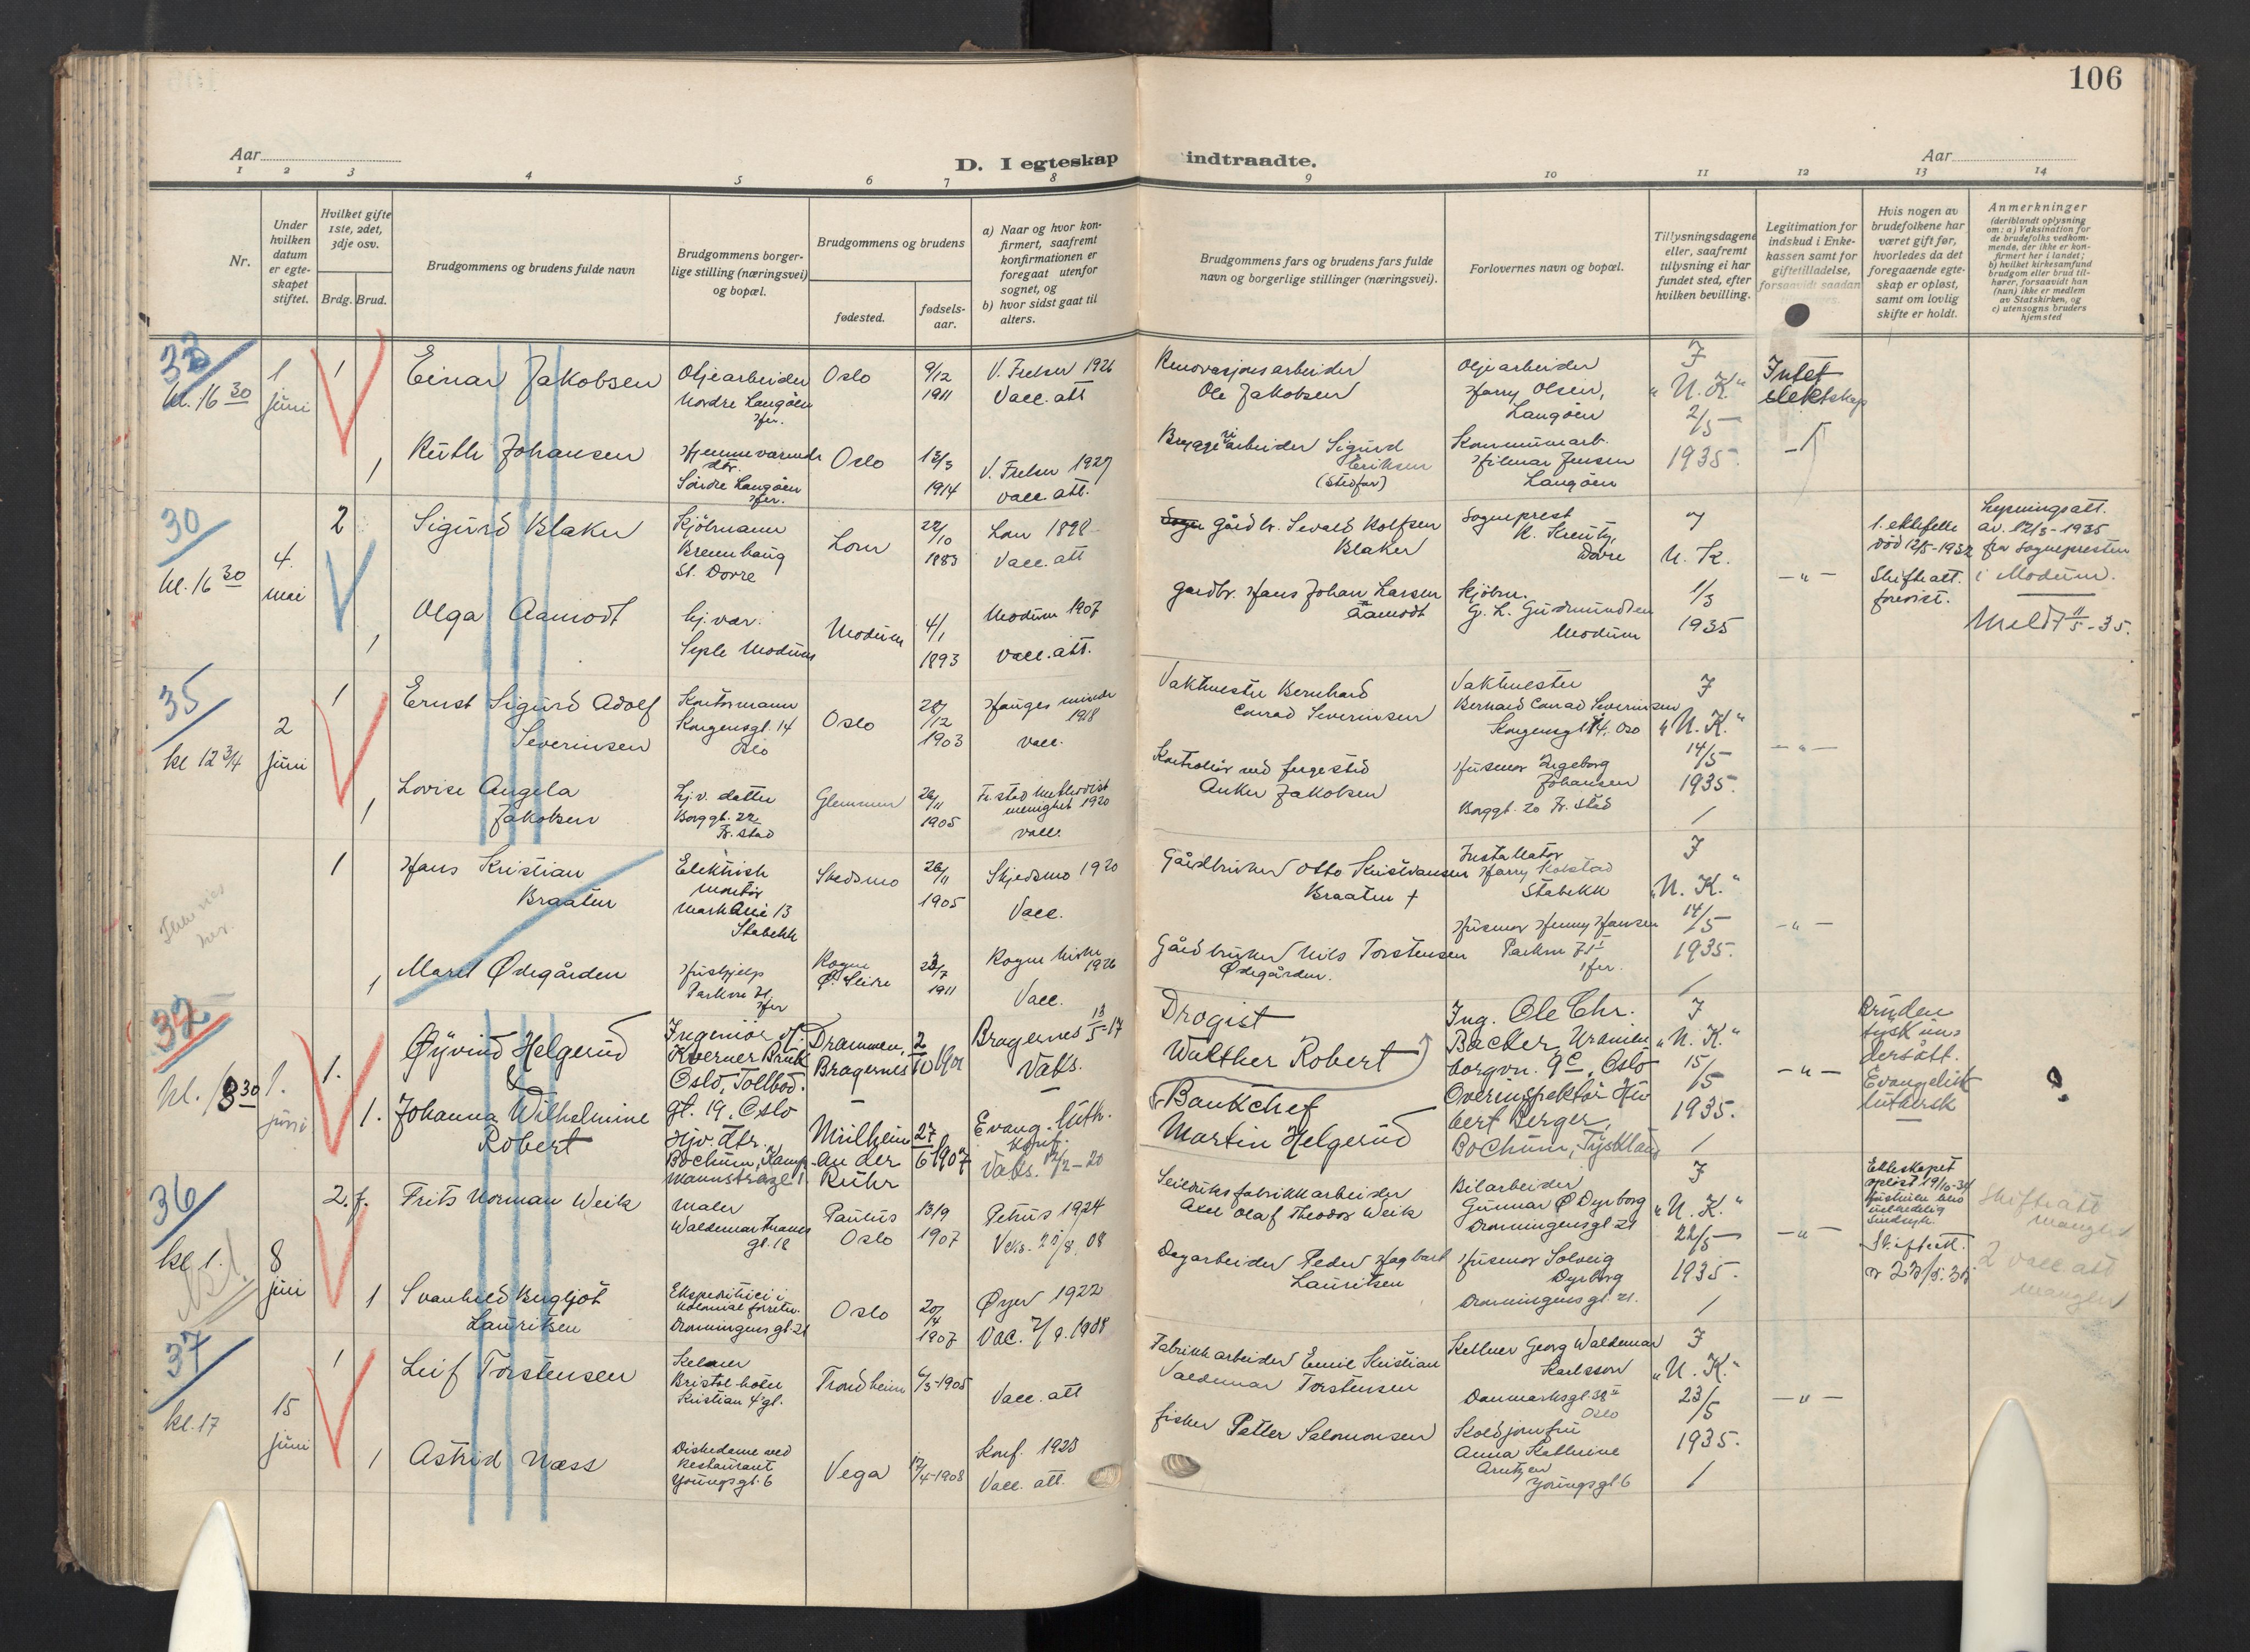 106
Aar
D. I egteskap indtraadte.
Aar
1 2 3 4 5 6 7 8 9 10 11 12 13 14
Nr.
Under
hvilken
datum
er egte-
skapet
stiftet.
Hvilket gifte
1ste, 2det,
3dje osv.
Brdg. Brud.
Brudgommens og brudens fulde navn
Brudgommens borger-
lige stilling (næringsvei)
og bopæl.
Brudgommens og brudens
fødested.
fødsels-
aar.
a) Naar og hvor kon-
firmert, saafremt
konfirmationen er
foregaat utenfor
sognet, og
b) hvor sidst gaat til
alters.
Brudgommens fars og brudens fars fulde
navn og borgerlige stillinger (næringsvei).
Forlovernes navn og bopæl.
Tillysningsdagene
eller, saafremt
tillysning ei har
fundet sted, efter
hvilken bevilling.
Legitimation for
indskud i Enke-
kassen samt for
giftetilladelse,
forsaavidt saadan
Hvis nogen av
brudefolkene har
været gift før,
hvorledes da det
foregaaende egte-
skap er opløst,
samt om lovlig
skifte er holdt.
Anmerkninger
(deriblandt oplysning
om: a) Vaksination for
de brudefolks vedkom-
mende, der ikke er kon-
firmert her i landet;
b) hvilket kirkesamfund
brudgom eller brud til-
hører, forsaavidt han
(hun) ikke er medlem
av Statskirken, og
c) utensogns bruders
hjemsted
33
kl. 16 30
1
juni
1
Einar Jakobsen
Oljearbeider
Nordre Langøen
Her.
Oslo
9/12
1911
V. Frelser 1926
Vacc. att
Renovasjonsarbeider
Ole Jakobsen
Oljearbeider
Harry Olsen,
Langøen
I
"U. K."
2/5
1935.
Intet
slektskap
1
Ruth Johansen
Hjemmeværende
dtr.
Søndre Langøen
Her.
Oslo
13/3
1914
V. Frelser 1927
vacc. att.
Bryggeriarbeider Sigurd
Eriksen
(Stedfar)
Kommunearb.
Hilmar Jensen
Langøen
30
kl. 16 30
4.
mai
2
Sigurd Blaker
Kjøbmann
Brennhaug
St. Dovre
Lom
22/10
1883
Lom 1898
Vacc. att
Gårdbr. Sevald Rolfsen
Blaker
Sogneprest
Dovre
U. K.
1/3
1935
-"-
1. ektefelle
død 12/5-1932
Skifteatt.
forevist.
Lysningsatt.
av. 12/3-1935
fra Sognepresten
i Modum.
Meldt 11/5-35.
1
Olga Aamodt
hj. vær.
Modum
4/1
1893
Modum 1907
vacc. att.
Gaardbr. Hans Johan Larsen
Aamodt
Kjøbm.
G. L. Gudmundsen
Modum
35
kl 12 3/4
2
juni
1
Ernst Sigurd Adolf
Severinsen
Kontormann
Kongensgt. 14
Oslo
Oslo
28/12
1903
Hauges minde
1918
vacc.
Vaktmester Bernhard
Conrad Severinsen
Vaktmester
Bernhard Conrad Severinsen
Kongensgt 14. Oslo
I
"U. K."
14/5
1935.
-"-
1
Lovise Angela
Jakobsen
Hj. v. datter
Borggt. 22
Fr. stad
Glemmen
26/11
1905
Fr. stad Methodist
menighet 1920
vacc.
Anker Jakobsen
Husmor Ingeborg
Johansen
Borggt. 20 Fr. stad
Ikke vies
her.
1
Hans Kristian
Braaten
Elektrisk
montør
Stabekk
Skedsmo
26/11
1905
Skjedsmo 1920
Vacc.
Gårdbruker Otto Kristiansen
Braaten +
Installatør
Harry Kolstad
Stabekk
I
"U. K."
14/5
1935.
-"-
1
Marit Ødegården
Hushjelp
Her
Rogne
Ø. Slidre
1911
Rogne kirke
1926
Vacc.
Gårdbruker Nils Torstensen
Ødegården.
Husmor Henny Hansen
Her.
32
kl. 18 30
1.
juni
1.
Øyvind Helgerud
&
Ingeniør v.
Kværner Bruk
Oslo, Tollbod.
gt. 19. Oslo
Drammen,
Bragernes
2/10 1901
Bragernes 13/5-17
Vaks.
Drogist
Walther Robert
Ing. Ole Chr.
Backer, Uranien
borgvn. 9c, Oslo
I
"U. K."
15/5
1935.
-"-
Bruden
tysk un-
dersått.
Evangelisk
luthersk
1.
Johanna Wilhelmine
Robert
Hjv. dtr.
Bochum, Kamp-
mannstrasze 1
Mülheim
an der
Ruhr
27/6 1907
Evang. luth.
konf.
Vaks. 12/2-20
Bankchef
Martin Helgerud
Overinspektør Hu-
bert Berger,
Bochum, Tyskland
36
kl 1.
8
juni
2. f.
Frits Norman Weik
Maler
Waldemar Thranes
gt. 18
Paulus
Oslo
13/9
1907
Petrus 1924
Seilduksfabrikkarbeider
Axel Olaf Theodor Weik
Bilarbeider
Gunnar Ø Dyrborg
Dronningensgt 21
I
"U. K."
22/5
1935.
-"-
Ekteskapet
opløst 19/10-34
Skifteatt.
Skifteatt
mangler
2 vacc. att
mangler
1
Svanhild Bergljot
Lauritsen
Kolonial forretn.
Dronningens gt. 21
Oslo
20/4
1907
Øyer 1922
Dagarbeider Peder Hagbart
Lauritsen
Husmor Solveig
Dyrborg
Dronningens gt. 21.
37
kl. 17
15
juni
1
Leif Torstensen
Kelner
Bristol hotel
Kristian 4 gt.
Trondheim
6/3-1905
Vacc. att
Fabrikkarbeider Emil Kristian
Valdemar Torstensen
Kellner Georg Waldemar
Karlsson
Danmarksgt. 38 II
Oslo
I
"U. K."
23/5
1935.
-"-
1
Astrid Næss
Diskedame ved
Restaurant
Youngsgt. 6
Vega
17/4-1908
Konf. 1923
Vacc. att.
fisker Petter Salomonsen
Anna Kathrine
Arntzen
Youngsgt 6